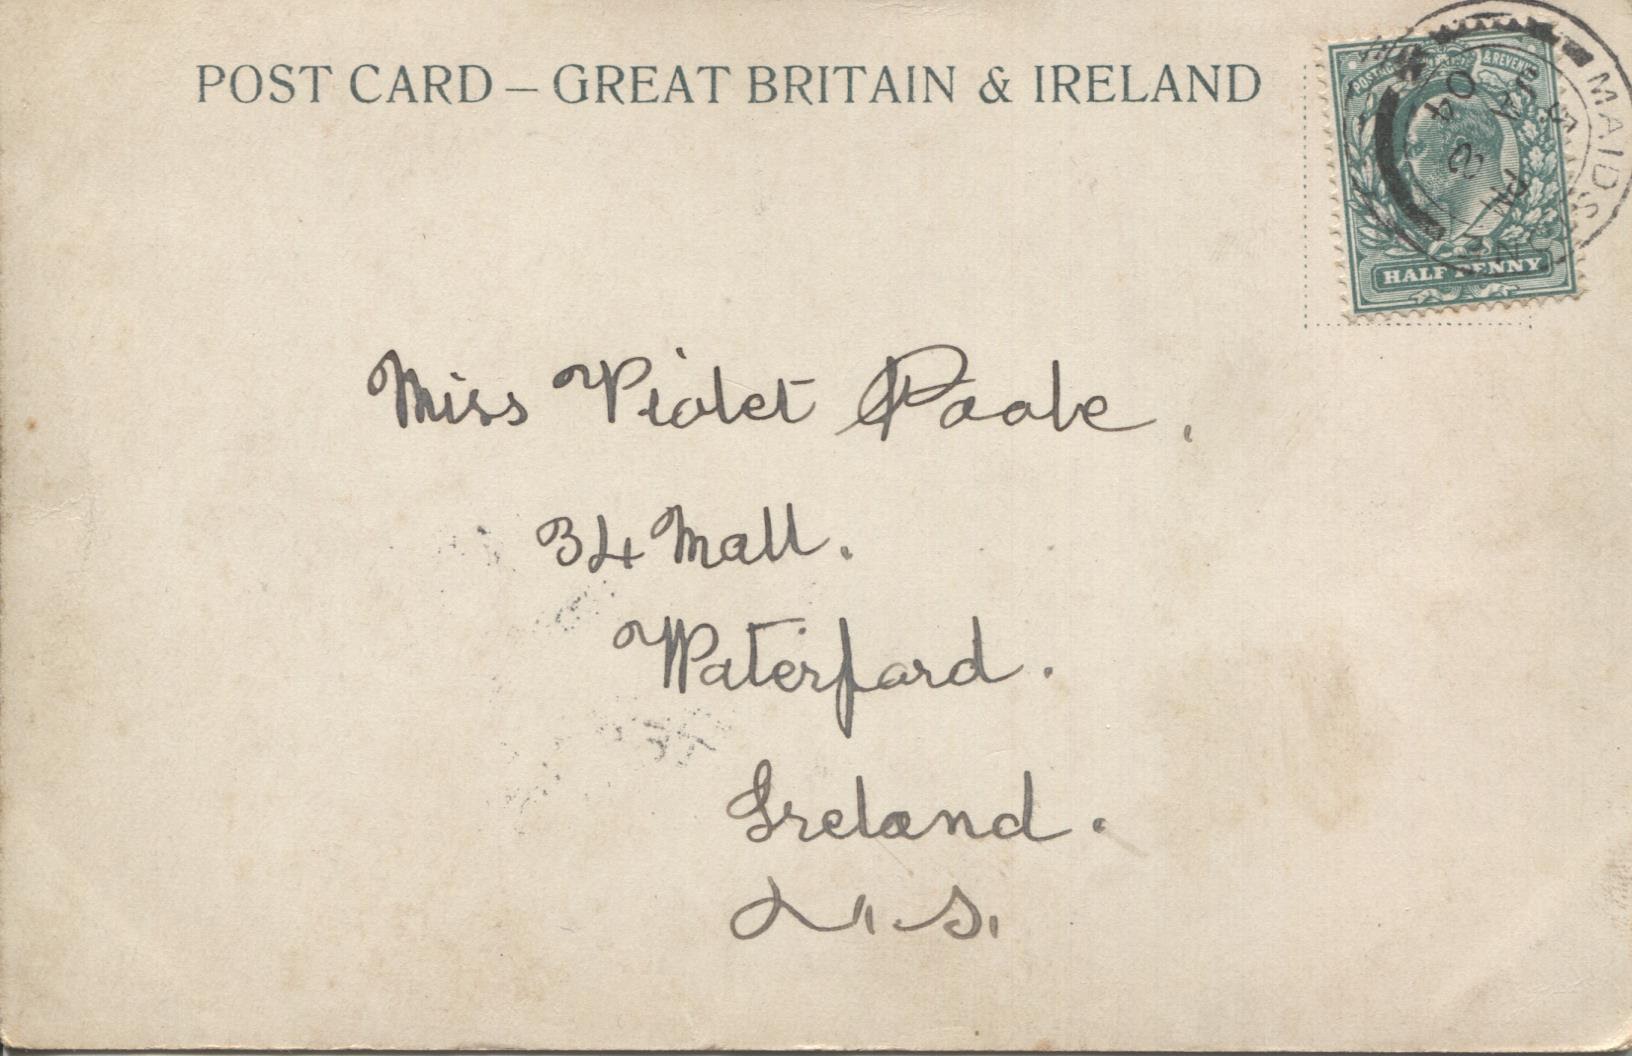 POST CARD – GREAT BRITAIN & IRELAND
POSTAGE & REVENUE
HALF PENNY
MAIDSTONE
Miss Violet Poole.
34 Mall.
Waterford.
Ireland.